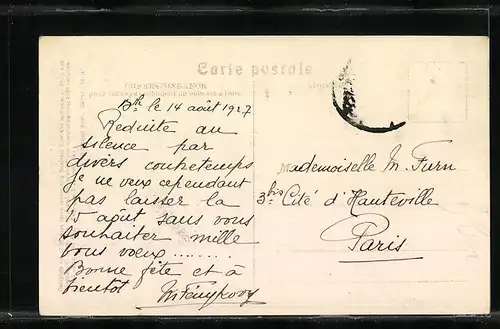 Carte postale
CORRESPONDANCE
le 14 août 1927
Reduite au
silence par
divers contretemps
je ne veux cependant
pas laisser la
15 août sans vous
souhaiter mille
bons vœux........
Bonne fête et à
bientot
Mademoiselle M. Furn
3 bis Cité d'Hauteville
Paris